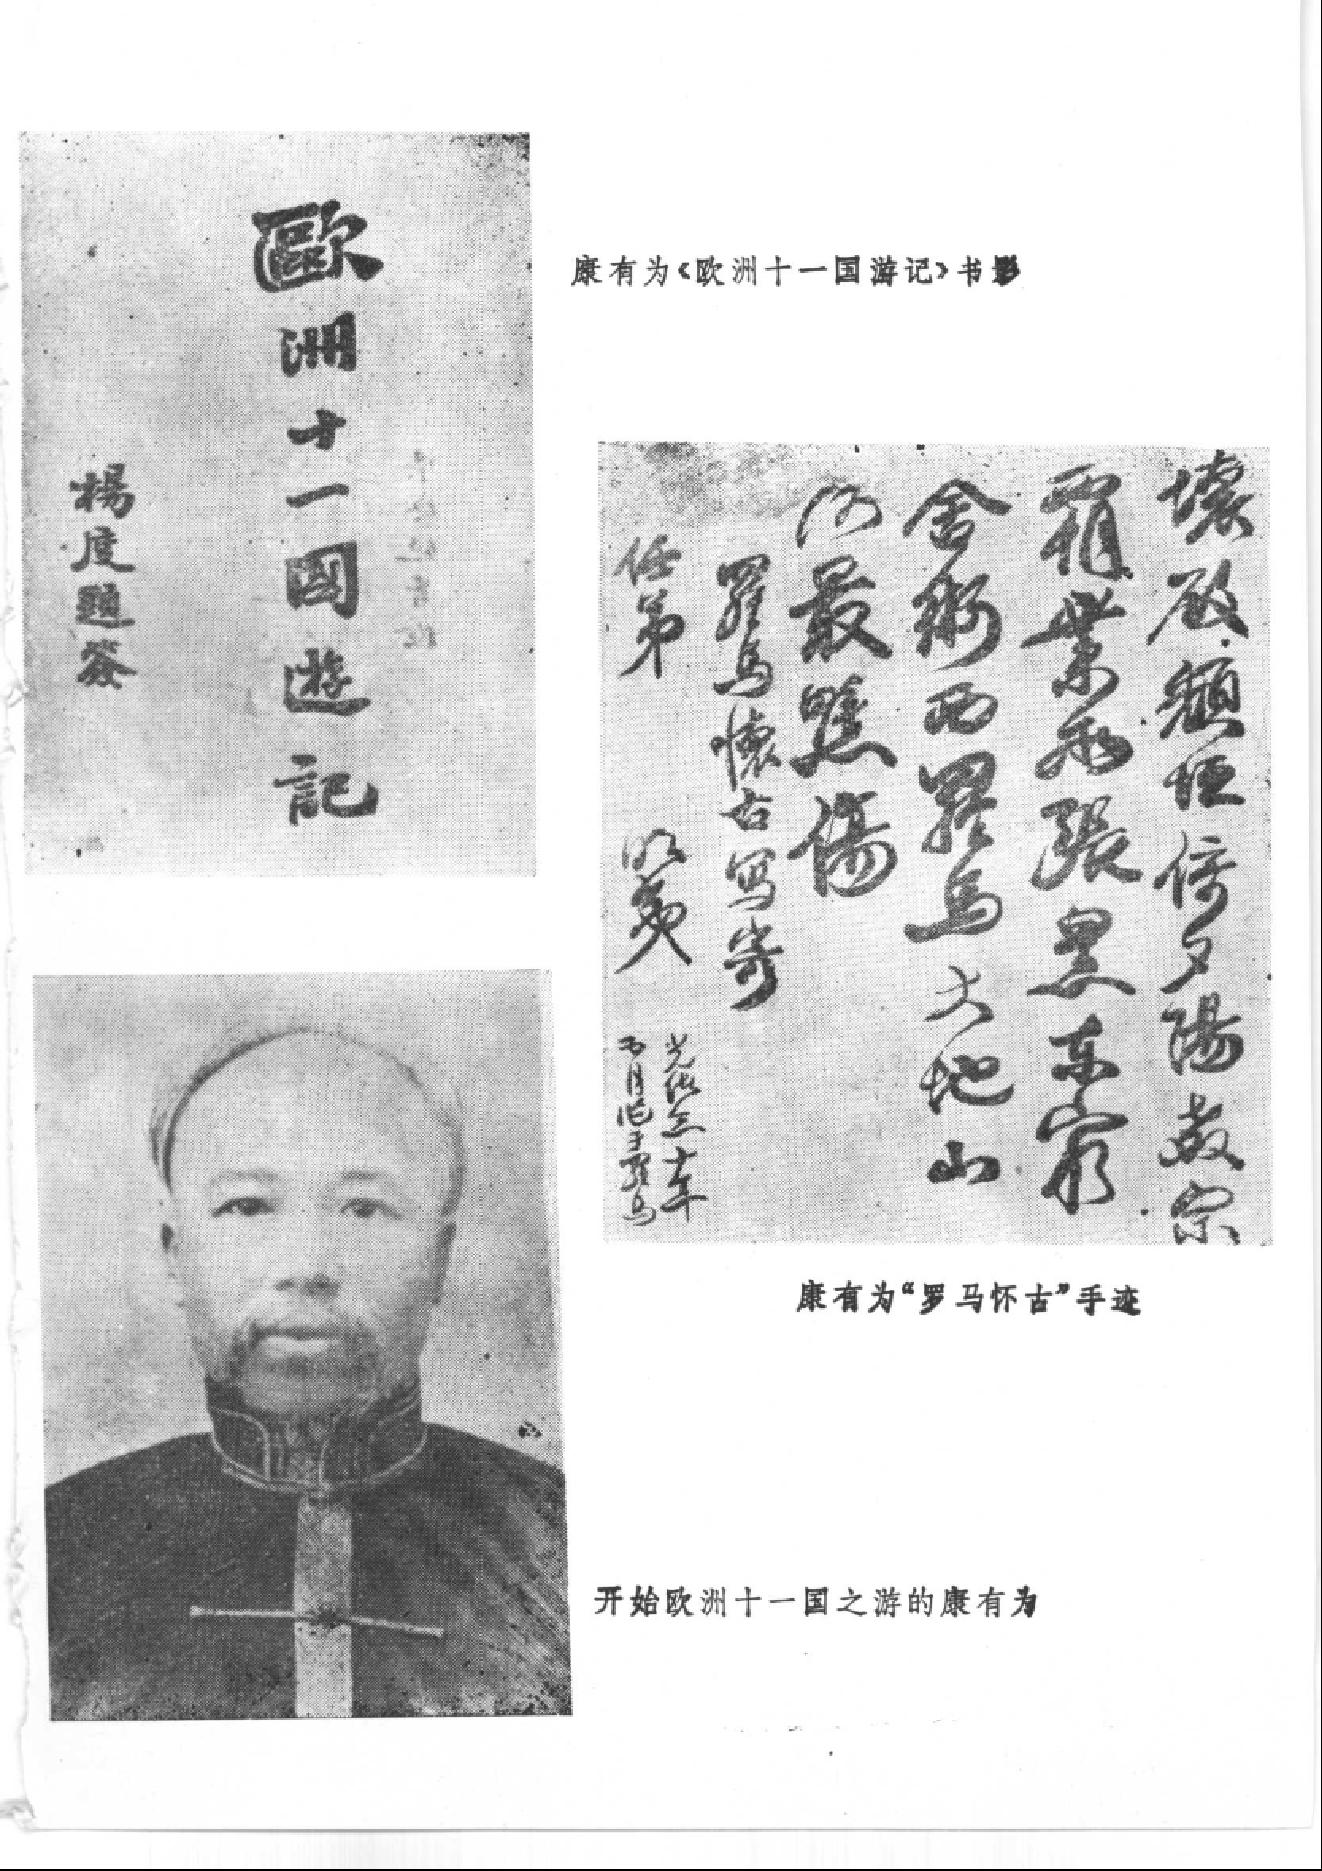 歐洲十一國遊記
楊度題簽
康有为《欧洲十一国游记》书影
壞殿頹垣倚夕陽教宗
霸業永張黑衣
金 西羅馬大地山
河最慘傷
羅馬懷古写寄
任弟
明夷
光緒三十年
五月 于羅馬
康有为“罗马怀古”手迹
开始欧洲十一国之游的康有为